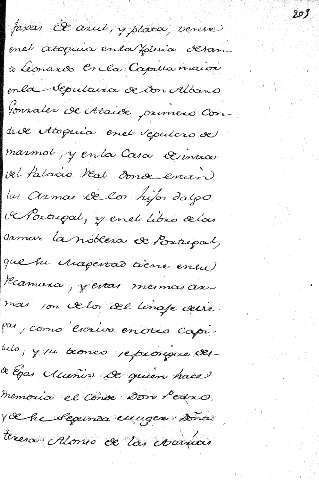 203
faxas de azul, y plata, vense
en el atoquia en la Yglesia de San-
Leonardo en la Capilla maior
en la Sepultura de Don Alvaro
Gonzalez de Ataide, primero Con-
de de Atoquia en el Sepulcro de
marmol, y en la Casa de
del Palacio Real donde están
las Armas de los hijos dalgo
de Portugal, y en el libro de las
armas la nobleza de Portugal,
que su Magestad tiene en su
Camara, y estas mesmas ar-
mas son de los del linaje de
pas, como escrivo en otro Capi-
tulo, y su tronco se prosigue des-
de Egas Muñiz de quien hace
memoria el Conde Don Pedro
y de su Segunda muger Doña
teresa Alonso de las Asturias